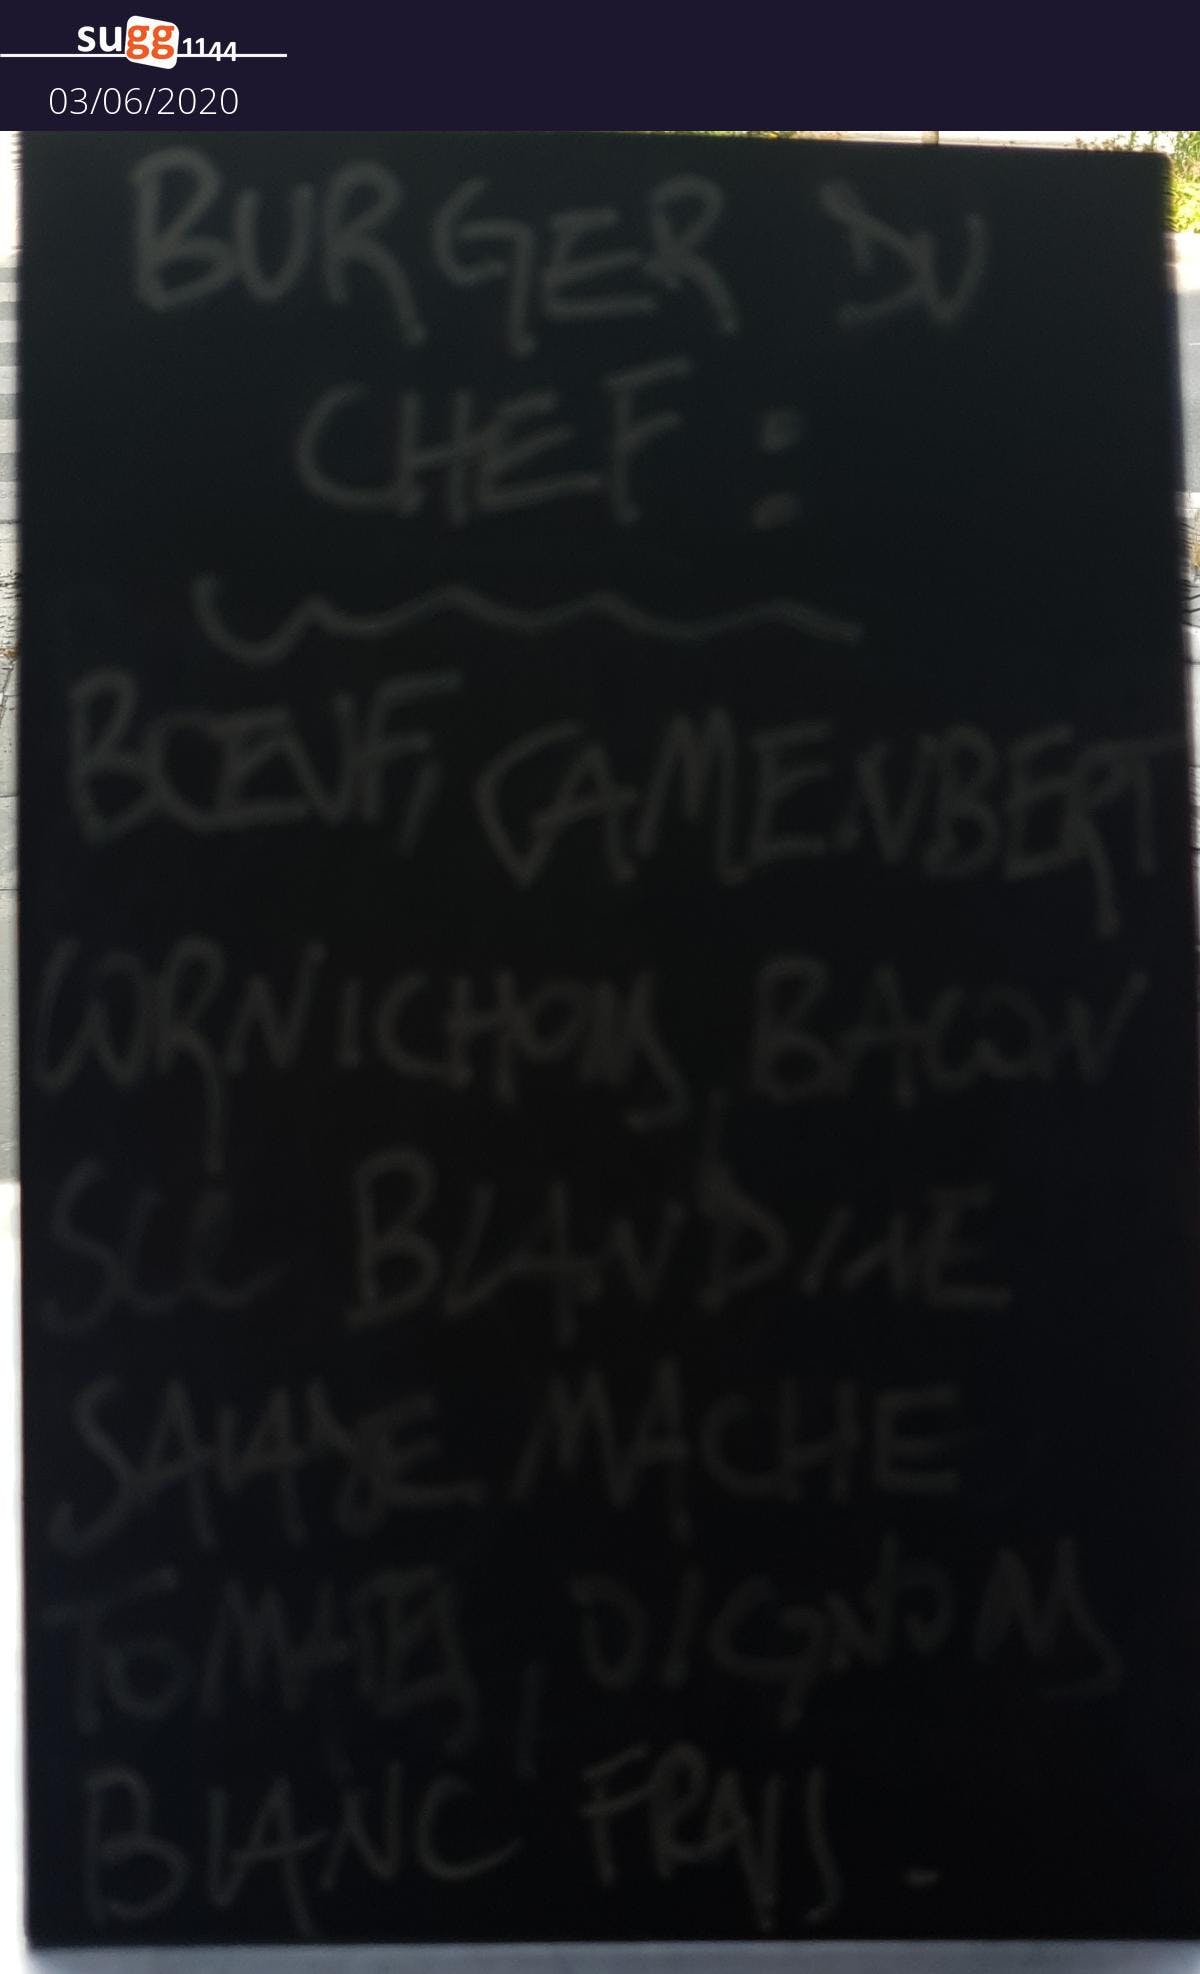 sugg1144
03/06/2020
BURGER DU
CHEF :
BŒUF, CAMENBERT
CORNICHONS, BACON
SCE BLANDINE
SALADE MACHE
TOMATES, OIGNONS
BLANC FRAIS.